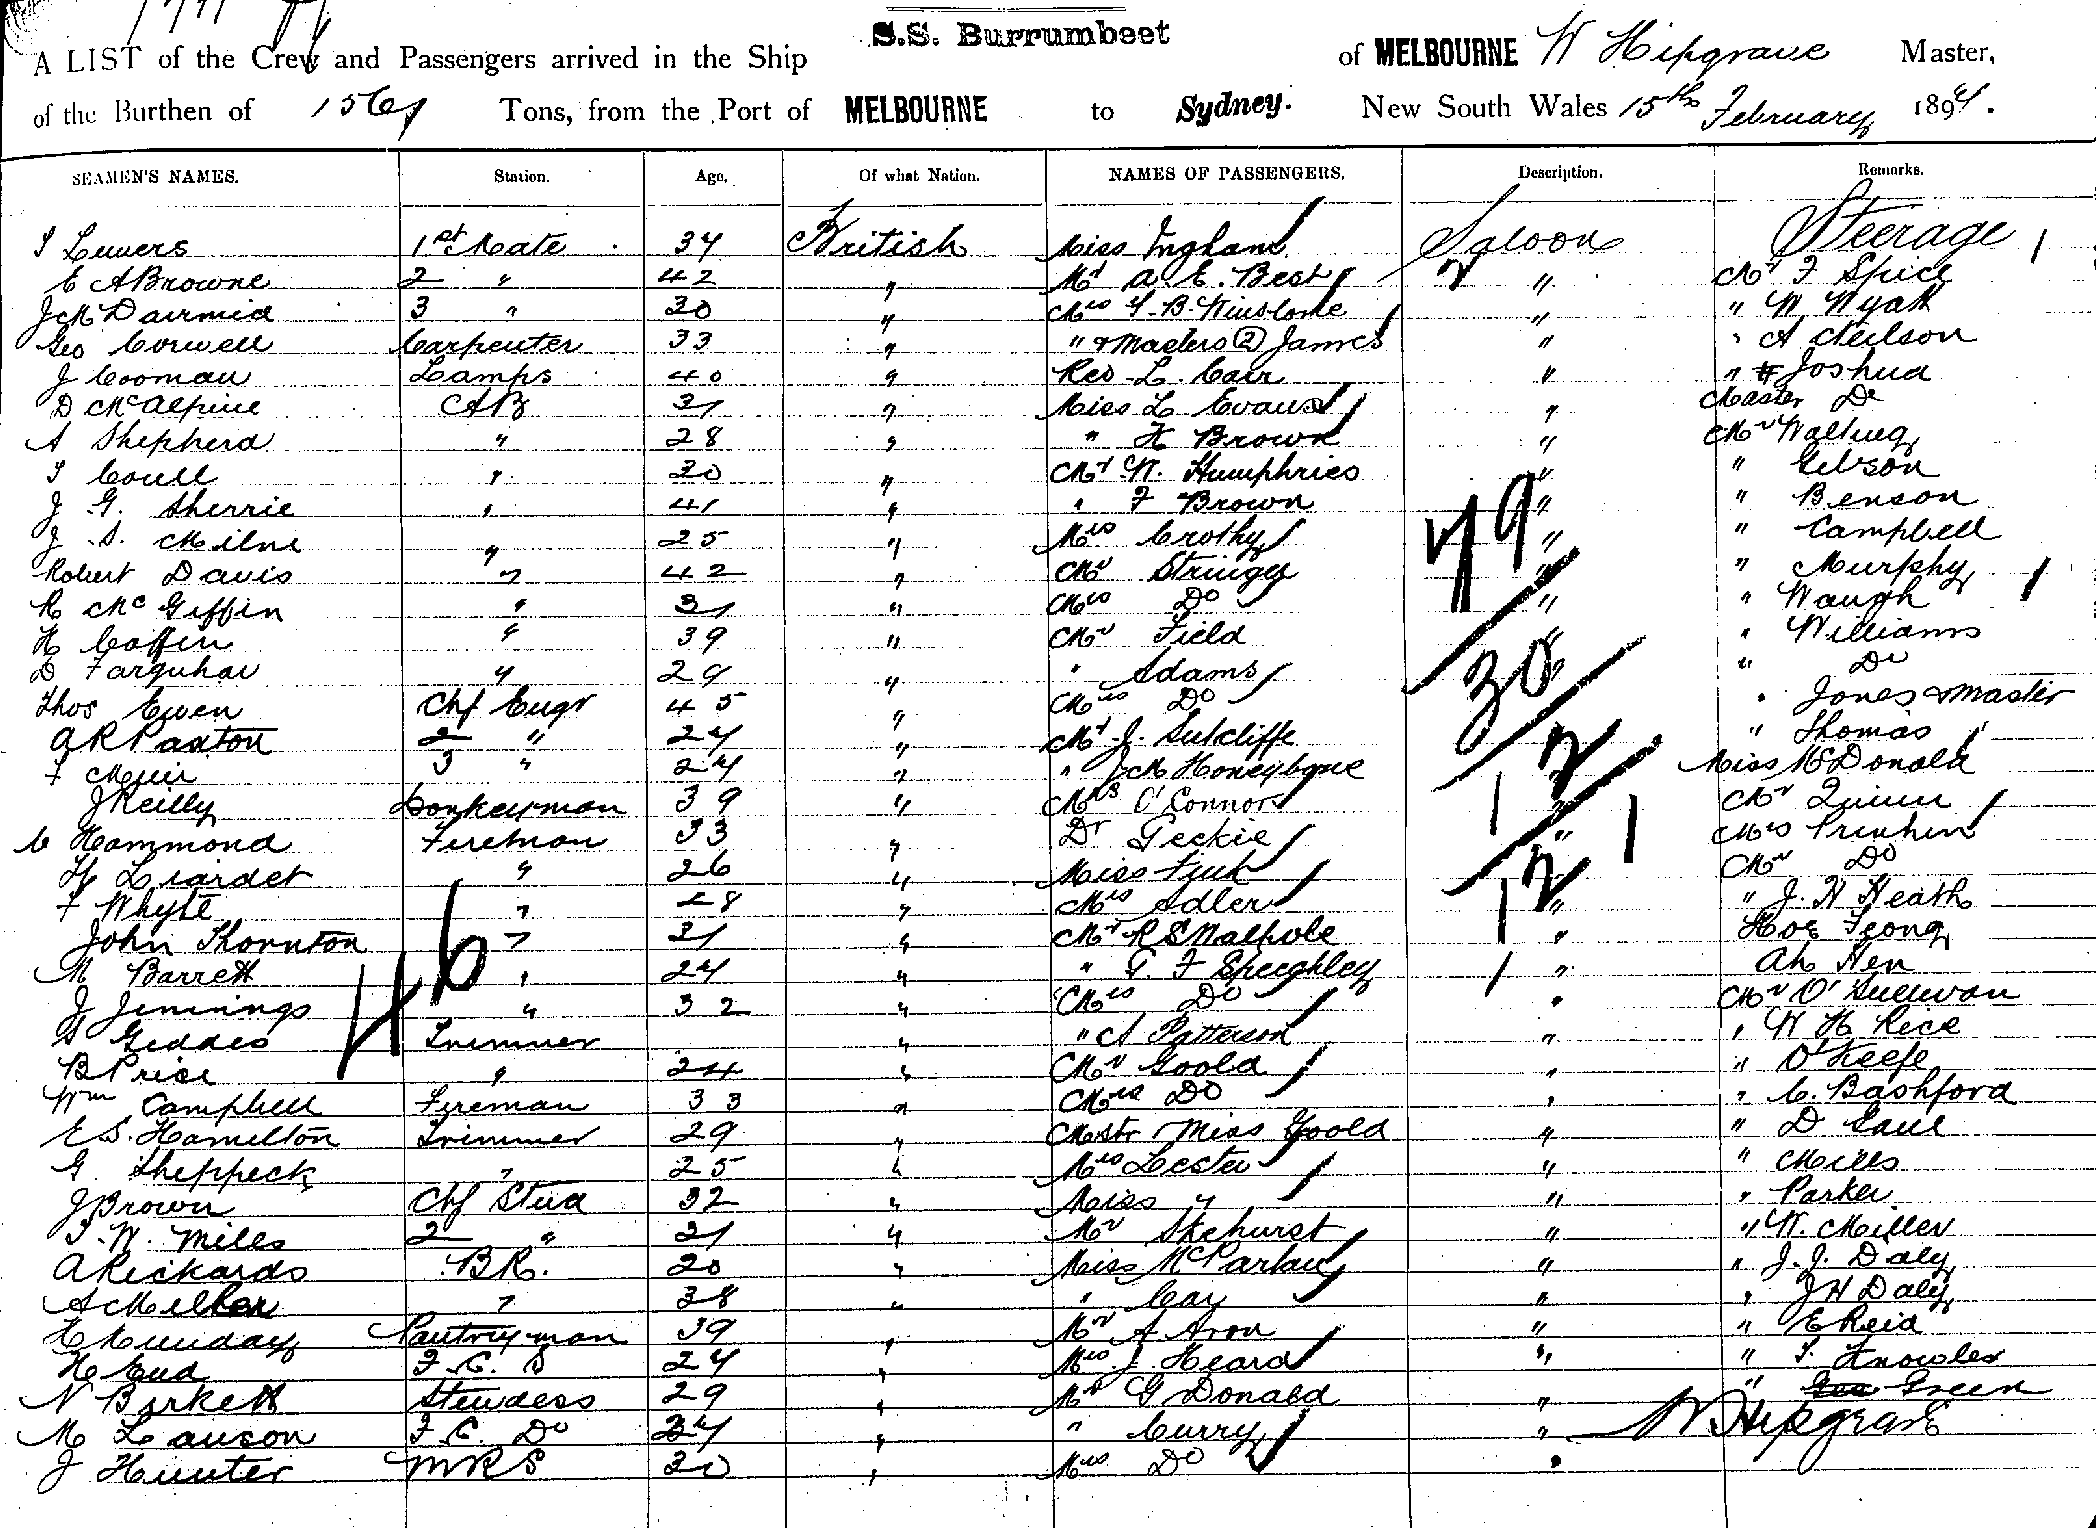 S.S. Burrumbeet
A LIST of the Crew and Passengers arrived in the Ship of MELBOURNE W Hipgrave Master,
of the Burthen of Tons, from the Port of MELBOURNE to Sydney. New South Wales 15th February 189
SEAMEN'S NAMES. Station. Age. Of what Nation. NAMES OF PASSENGERS. Description. Remarks.
1st Mate British Miss Ingham Saloon Steerage
E A Browne 2 " 42 " Mr A. E. Best " Mr F Spice
3 " 30 " Mrs " " W Wyatt
Geo Corwell Carpenter 33 " " & Masters (2) James " " A Neilson
J Cooman Lamps 40 " Rev L. Carr " " Joshua
D McAlpine AB 31 " Miss L Evans " Master Do
A Shepherd " 28 " " H Brown " Mr Walling
Coull " 30 " Mr W. Humphries " " Gibson
J G. Sherrie " 41 " " F Brown " " Benson
J. S. Milne " 25 " Mrs Crothy " " Campbell
Robert Davis " 42 " Mr Stringer " " Murphy
R McGiffin " 31 " Mrs Do " " Waugh
H Coffin " 39 " Mr Field " " Williams
D Farquhar " 29 " " Adams " " Do
Thos Ewen Chf Engr 45 " Mrs Do " " Jones & Master
A R Paxton 2 " 24 " Mr J. Sutcliffe " " Thomas
F Muir 3 " 24 " " Honeybone " Miss McDonald
J Reilly Donkeyman 39 " Mrs O'Connor " Mr Quinn
C Hammond Fireman 33 " Dr Geckie " Mrs
H Liardet " 26 " Miss " Mr Do
F Whyte " 28 " Mrs Adler " " J. H Heath
John Thornton " 31 " Mr R S Walpole " Hoe Feong
M Barrett " 24 " " G. F Speighley " Ah Hen
J Jennings " 32 " Mrs Do " Mr O'Sullivan
S Geddes Trimmer " " A Patterson " " W H Rice
B Price " 24 " Mr Goold " " O'Keefe
Wm Campbell Fireman 33 " Mrs Do " " C. Bashford
E S. Hamilton Trimmer 29 " Mstr & Miss Goold " " D Gaul
G Sheppeck " 25 " Mrs Lester " " Mills
J Brown Chf Stwd 32 " Miss " " " Parker
W. Miles 2 " 21 " Mr Skehurst " " W. Miller
A Rickards B.R. 20 " Miss McParlan " " J. J. Daly
A Milken " 38 " " Cay " " J H Daly
E Munday Pantryman 39 " Mr A Aron " " E Reid
H End F. C. S 24 " Mrs J. Heard " " Knowles
N Birkett Stewdess 29 " Mr G Donald " " Green
M Lawson F. C. Do " " Curry " W Hipgrave
J Hunter MRS 30 " Mrs Do "
46
79
30
12
12